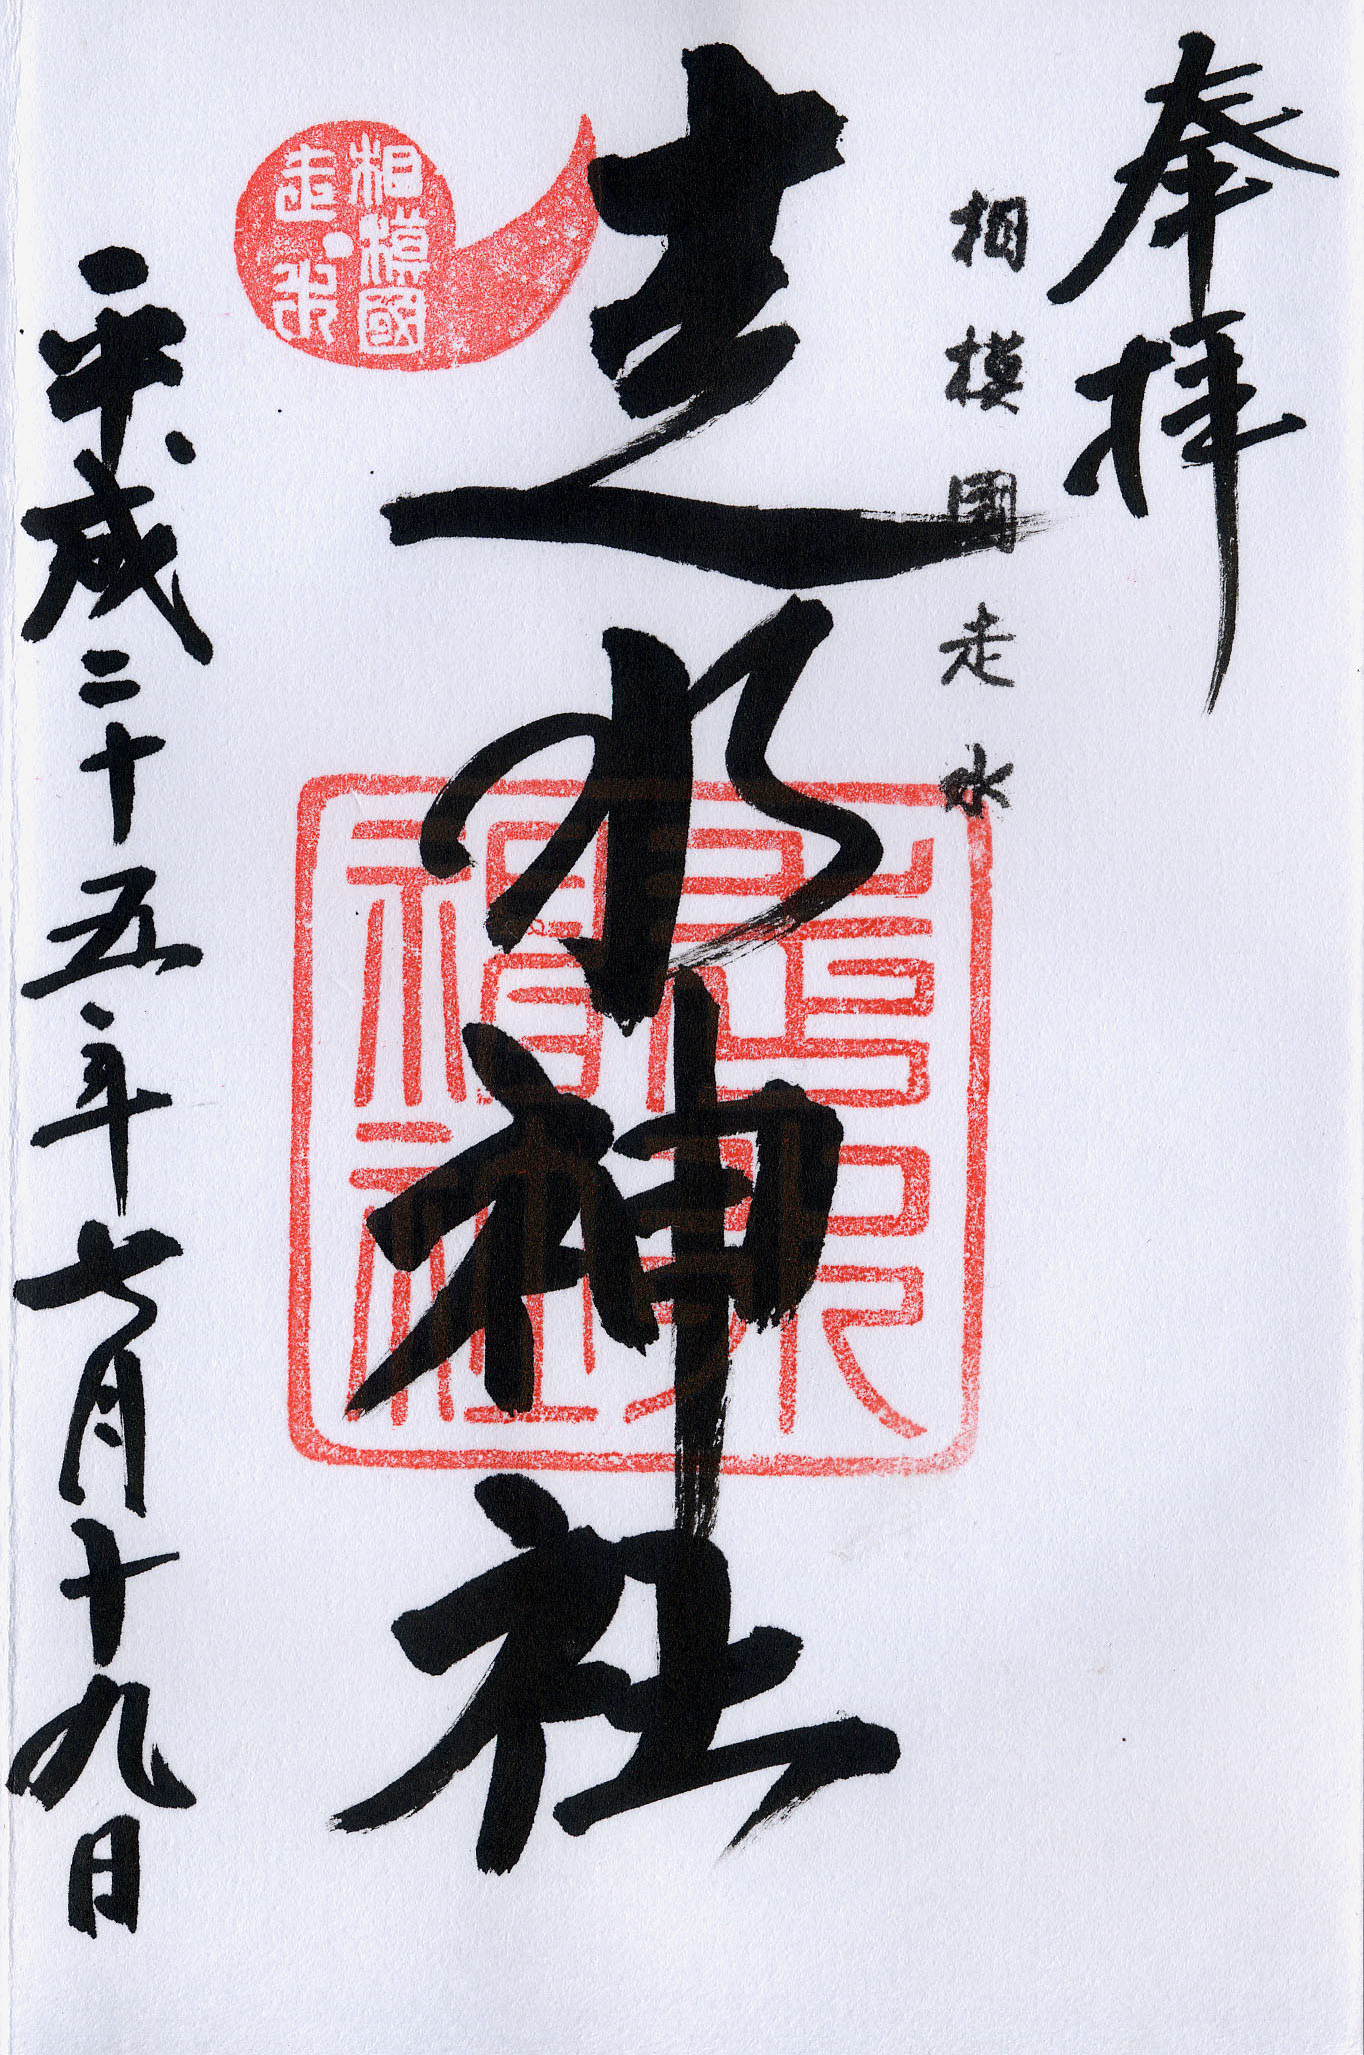 奉拝
相模國走水
走水神社
相模國
走水
平成二十五年七月十九日